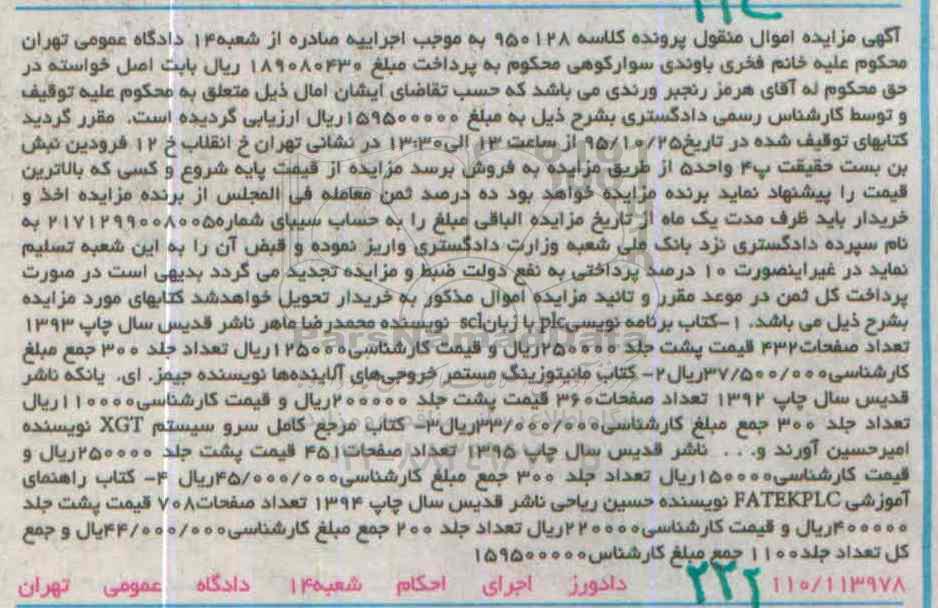 آگهی مزایده اموال منقول پرونده کلاسه ۹۵۰۱۲۸ به موجب اجراییه صادره از شعبه۱۴ دادگاه عمومی تهران
محکوم علیه خانم فخری باوندی سوارکوهی محکوم به پرداخت مبلغ ۱۸۹۰۸۰۴۳۰ ریال بابت اصل خواسته در
حق محکوم له آقای هرمز رنجبر ورندی می باشد که حسب تقاضای ایشان امال ذیل متعلق به محکوم علیه توقیف
و توسط کارشناس رسمی دادگستری بشرح ذیل به مبلغ ۱۵۹۵۰۰۰۰۰ریال ارزیابی گردیده است. مقرر گردید
کتابهای توقیف شده در تاریخ۹۵/۱۰/۲۵ از ساعت ۱۳ الی۱۳:۳۰ در نشانی تهران خ انقلاب خ ۱۲ فرودین نبش
بن بست حقیقت پ۴ واحد۵ از طریق مزایده به فروش برسد مزایده از قیمت پایه شروع و کسی که بالاترین
قیمت را پیشنهاد نماید برنده مزایده خواهد بود ده درصد ثمن معامله فی المجلس از برنده مزایده اخذ و
خریدار باید ظرف مدت یک ماه از تاریخ مزایده الباقی مبلغ را به حساب سیبای شماره۲۱۷۱۲۹۹۰۰۸۰۰۵ به
نام سپرده دادگستری نزد بانک ملی شعبه وزارت دادگستری واریز نموده و قبض آن را به این شعبه تسلیم
نماید در غیراینصورت ۱۰ درصد پرداختی به نفع دولت ضبط و مزایده تجدید می گردد بدیهی است در صورت
پرداخت کل ثمن در موعد مقرر و تائید مزایده اموال مذکور به خریدار تحویل خواهدشد کتابهای مورد مزایده
بشرح ذیل می باشد. ۱-کتاب برنامه نویسیplc با زبانscl نویسنده محمدرضا ماهر ناشر قدیس سال چاپ ۱۳۹۳
تعداد صفحات۴۳۲ قیمت پشت جلد ۲۵۰۰۰۰ریال و قیمت کارشناسی۱۲۵۰۰۰ریال تعداد جلد ۳۰۰ جمع مبلغ
کارشناسی۳۷/۵۰۰/۰۰۰ریال۲- کتاب مانیتوزینگ مستمر خروجی‌های آلاینده‌ها نویسنده جیمز. ای. یانکه ناشر
قدیس سال چاپ ۱۳۹۲ تعداد صفحات۳۶۰ قثمت پشت جلد ۲۰۰۰۰۰ریال و قیمت کارشناسی۱۱۰۰۰۰ریال
تعداد جلد ۳۰۰ جمع مبلغ کارشناسی۳۳/۰۰۰/۰۰۰ریال۳- کتاب مرجع کامل سرو سیستم XGT نویسنده
امیرحسین آورند و. . . ناشر قدیس سال چاپ ۱۳۹۵ تعداد صفحات۴۵۱ قیمت پشت جلد ۲۵۰۰۰۰ریال و
قیمت کارشناسی۱۵۰۰۰۰ریال تعداد جلد ۳۰۰ جمع مبلغ کارشناسی۴۵/۰۰۰/۰۰۰ریال ۴- کتاب راهنمای
آموزشی FATEKPLC نویسنده حسین ریاحی ناشر قدیس سال چاپ ۱۳۹۴ تعداد صفحات۷۰۸ قیمت پشت جلد
۴۰۰۰۰۰ریال و قیمت کارشناسی۲۲۰۰۰۰ریال تعداد جلد ۲۰۰ جمع مبلغ کارشناسی۴۴/۰۰۰/۰۰۰یال و جمع
کل تعداد جلد۱۱۰۰ جمع مبلغ کارشناس۱۵۹۵۰۰۰۰۰
۱۱۰/۱۱۳۹۷۸ دادورز اجرای احکام شعبه۱۴ دادگاه عمومی تهران
۲۲۲
ParsNamadData